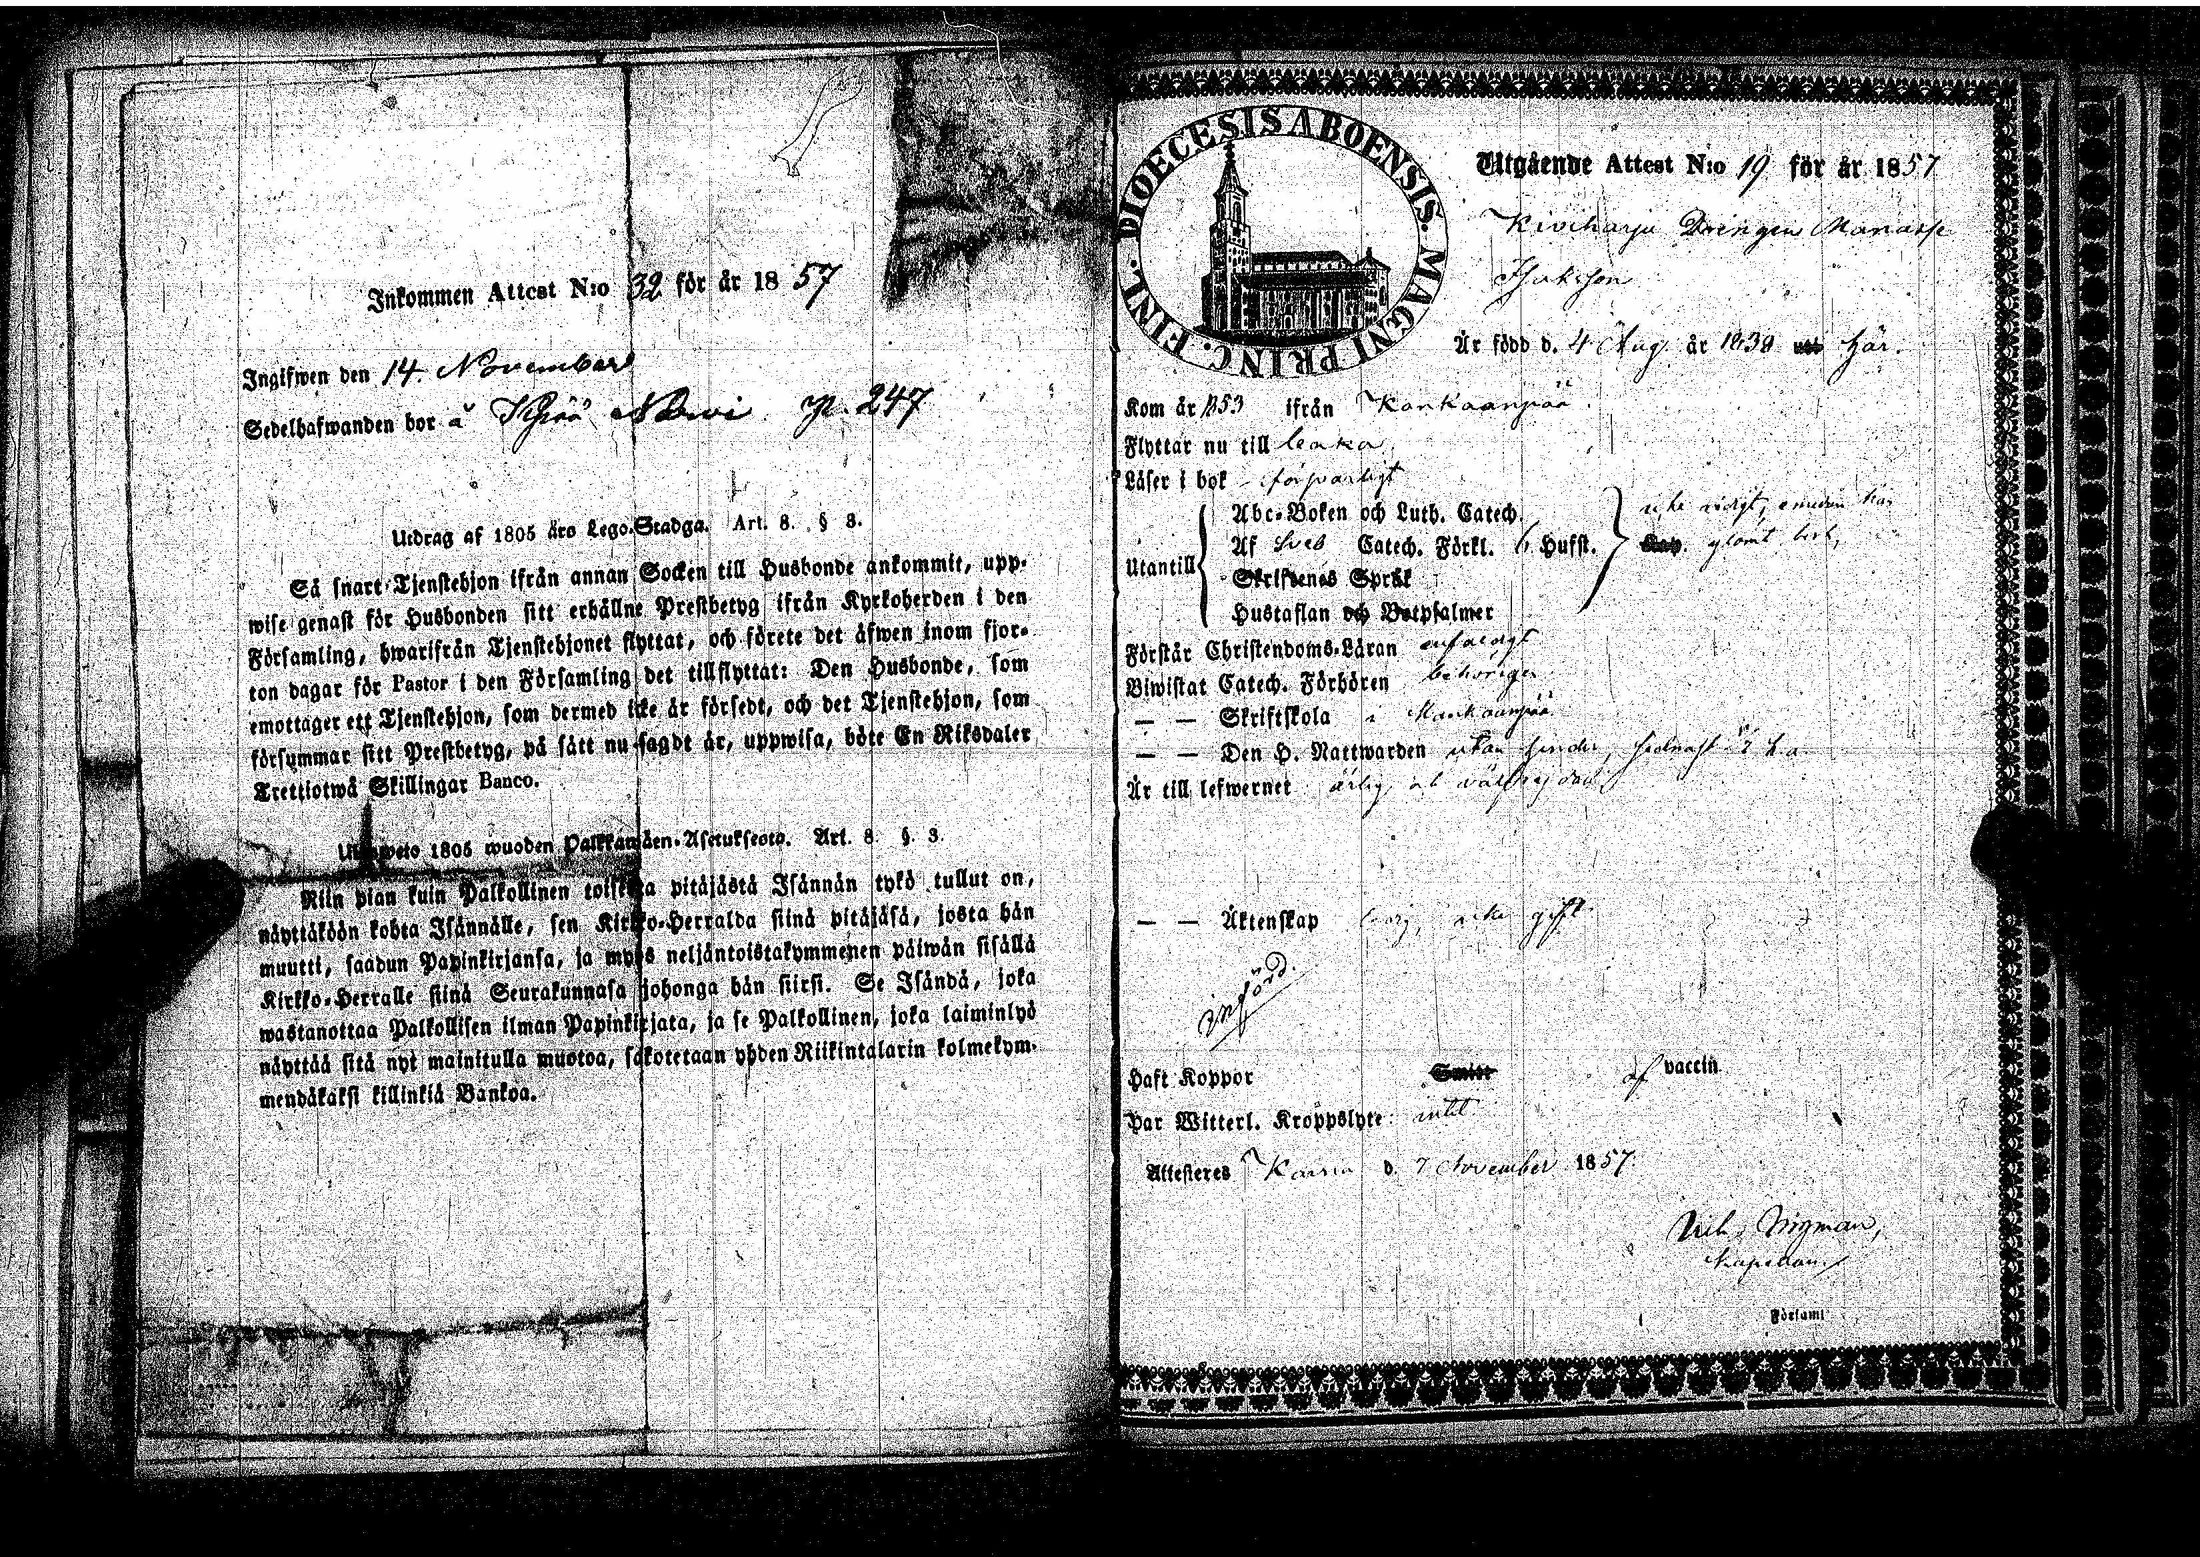 Inkommen Attest N:o 32 för år 1857
Ingifwen den 14. November
Sedelhafwanden bor å p. 247
Utdrag af 1805 års Lego-Stadga. Art. 8. § 3.
Så snart Tjenstehjon ifrån annan Socken till Husbonde ankommit, upp-
wise genast för Husbonden sitt erhållne Prestbetyg ifrån Kyrkoherden i den
Församling, hwarifrån Tjenstehjonet flyttat, och förete det äfwen inom fjor-
ton dagar för Pastor i den Församling det tillflyttat: Den Husbonde, som
emottager ett Tjenstehjon, som dermed icke är försedt, och det Tjenstehjon, som
försummar sitt Prestbetyg, på sätt nu sagdt är, uppwisa, böte En Riksdaler
Trettiotwå Skillingar Banco.
1805 wuoden Palkkawäen-Asetuksesta. Art. 8. §. 3.
Niin pian kuin Palkollinen toisesta pitäjästä Isännän tykö tullut on,
näyttäköön kohta Isännälle, sen Kirkko-Herralda siinä pitäjäsä, josta hän
muutti, saadun Papinkirjansa, ja myös neljäntoistakymmenen päiwän sisällä
Kirkko-Herralle siinä Seurakunnasa johonga hän siirsi. Se Isändä, joka
wastanottaa Palkollisen ilman Papinkirjata, ja se Palkollinen, joka laiminlyö
näyttää sitä nyt mainitulla muotoa, sakotetaan yhden Riikintalarin kolmekym-
mendäkaksi killinkiä Bankoa.
DIOECESIS ABOENSIS. MAGNI PRINC. FINL.
Utgående Attest N:o 19 för år 1857
Kiviharju Drengen Manasse
Isaksson
Är född d. 4 Aug. år 1839 här.
Kom år 1853 ifrån Kankaanpää
Flyttar nu till
Läser i bok försvarligt
Utantill
Abc-Boken och Luth. Catech.
Af Sveb Catech. Förkl. Husst.
Skriftenes Språk
Hustaflan och Botpsalmer
icke
glömt bort,
Förstår Christendoms-Läran enfaldigt
Biwistat Catech. Förhören behörigen
— — Skriftskola i Kankaanpää
— — Den H. Nattwarden utan hinder, sednast
Är till lefwernet ärlig och
— — Äktenskap icke gift
införd.
Haft Koppor Smitt af vaccin
Har Witterl. Kroppslyte intet
Attesteres d. 7 November 1857.
kapellan.
Församl